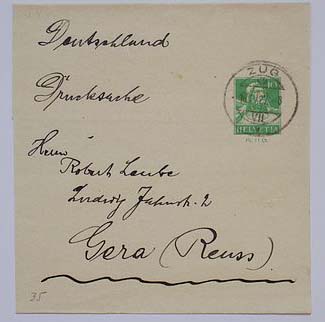 Deutschland
Drucksache
ZUG
10
VII
HELVETIA
Herrn
Robert Laube
Ludwig Jahnstr. 2
Gera (Reuss)
35